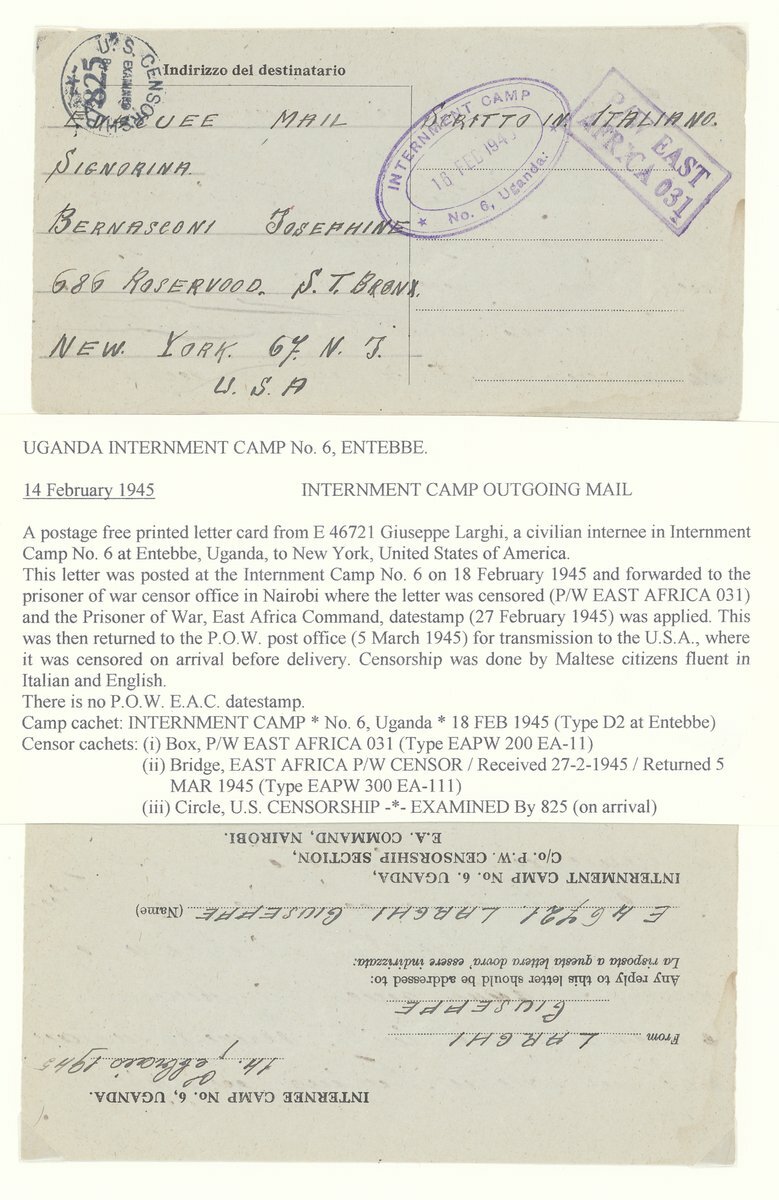 U. S. CENSORSHIP
EXAMINED
By
825
Indirizzo del destinatario
MAIL SCRITTO IN ITALIANO.
INTERNMENT CAMP
18 FEB 1945
No. 6, Uganda.
P/W EAST
AFRICA 031
SIGNORINA.
BERNASCONI JOSEPHINE
686 ROSERVOOD. S. T. BRONX.
NEW. YORK. 67. N. J.
U. S. A
UGANDA INTERNMENT CAMP No. 6, ENTEBBE.
14 February 1945 INTERNMENT CAMP OUTGOING MAIL
A postage free printed letter card from E 46721 Giuseppe Larghi, a civilian internee in Internment
Camp No. 6 at Entebbe, Uganda, to New York, United States of America.
This letter was posted at the Internment Camp No. 6 on 18 February 1945 and forwarded to the
prisoner of war censor office in Nairobi where the letter was censored (P/W EAST AFRICA 031)
and the Prisoner of War, East Africa Command, datestamp (27 February 1945) was applied. This
was then returned to the P.O.W. post office (5 March 1945) for transmission to the U.S.A., where
it was censored on arrival before delivery. Censorship was done by Maltese citizens fluent in
Italian and English.
There is no P.O.W. E.A.C. datestamp.
Camp cachet: INTERNMENT CAMP * No. 6, Uganda * 18 FEB 1945 (Type D2 at Entebbe)
Censor cachets: (i) Box, P/W EAST AFRICA 031 (Type EAPW 200 EA-11)
(ii) Bridge, EAST AFRICA P/W CENSOR / Received 27-2-1945 / Returned 5
MAR 1945 (Type EAPW 300 EA-111)
(iii) Circle, U.S. CENSORSHIP -*- EXAMINED By 825 (on arrival)
INTERNEE CAMP No. 6, UGANDA.
14. Febbraio 1945
From LARGHI
GIUSEPPE
Any reply to this letter should be addressed to:
La risposta a questa lettera dovra' essere indirizzata:
E 46721. LARGHI GIUSEPPE (Name)
INTERNMENT CAMP No. 6. UGANDA,
C/o. P.W. CENSORSHIP SECTION,
E.A. COMMAND, NAIROBI.